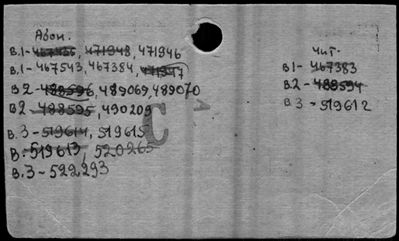 Абон.
В.1-467385, 471948, 471946
В.1-467543, 467384, 471947
В2-488596, 489069, 489070
В2-488595, 490209
В.3-519614, 519615
В.-519613, 520265
В.3-522293
Чит.
В1-467383
В2-488594
В3-519612
С